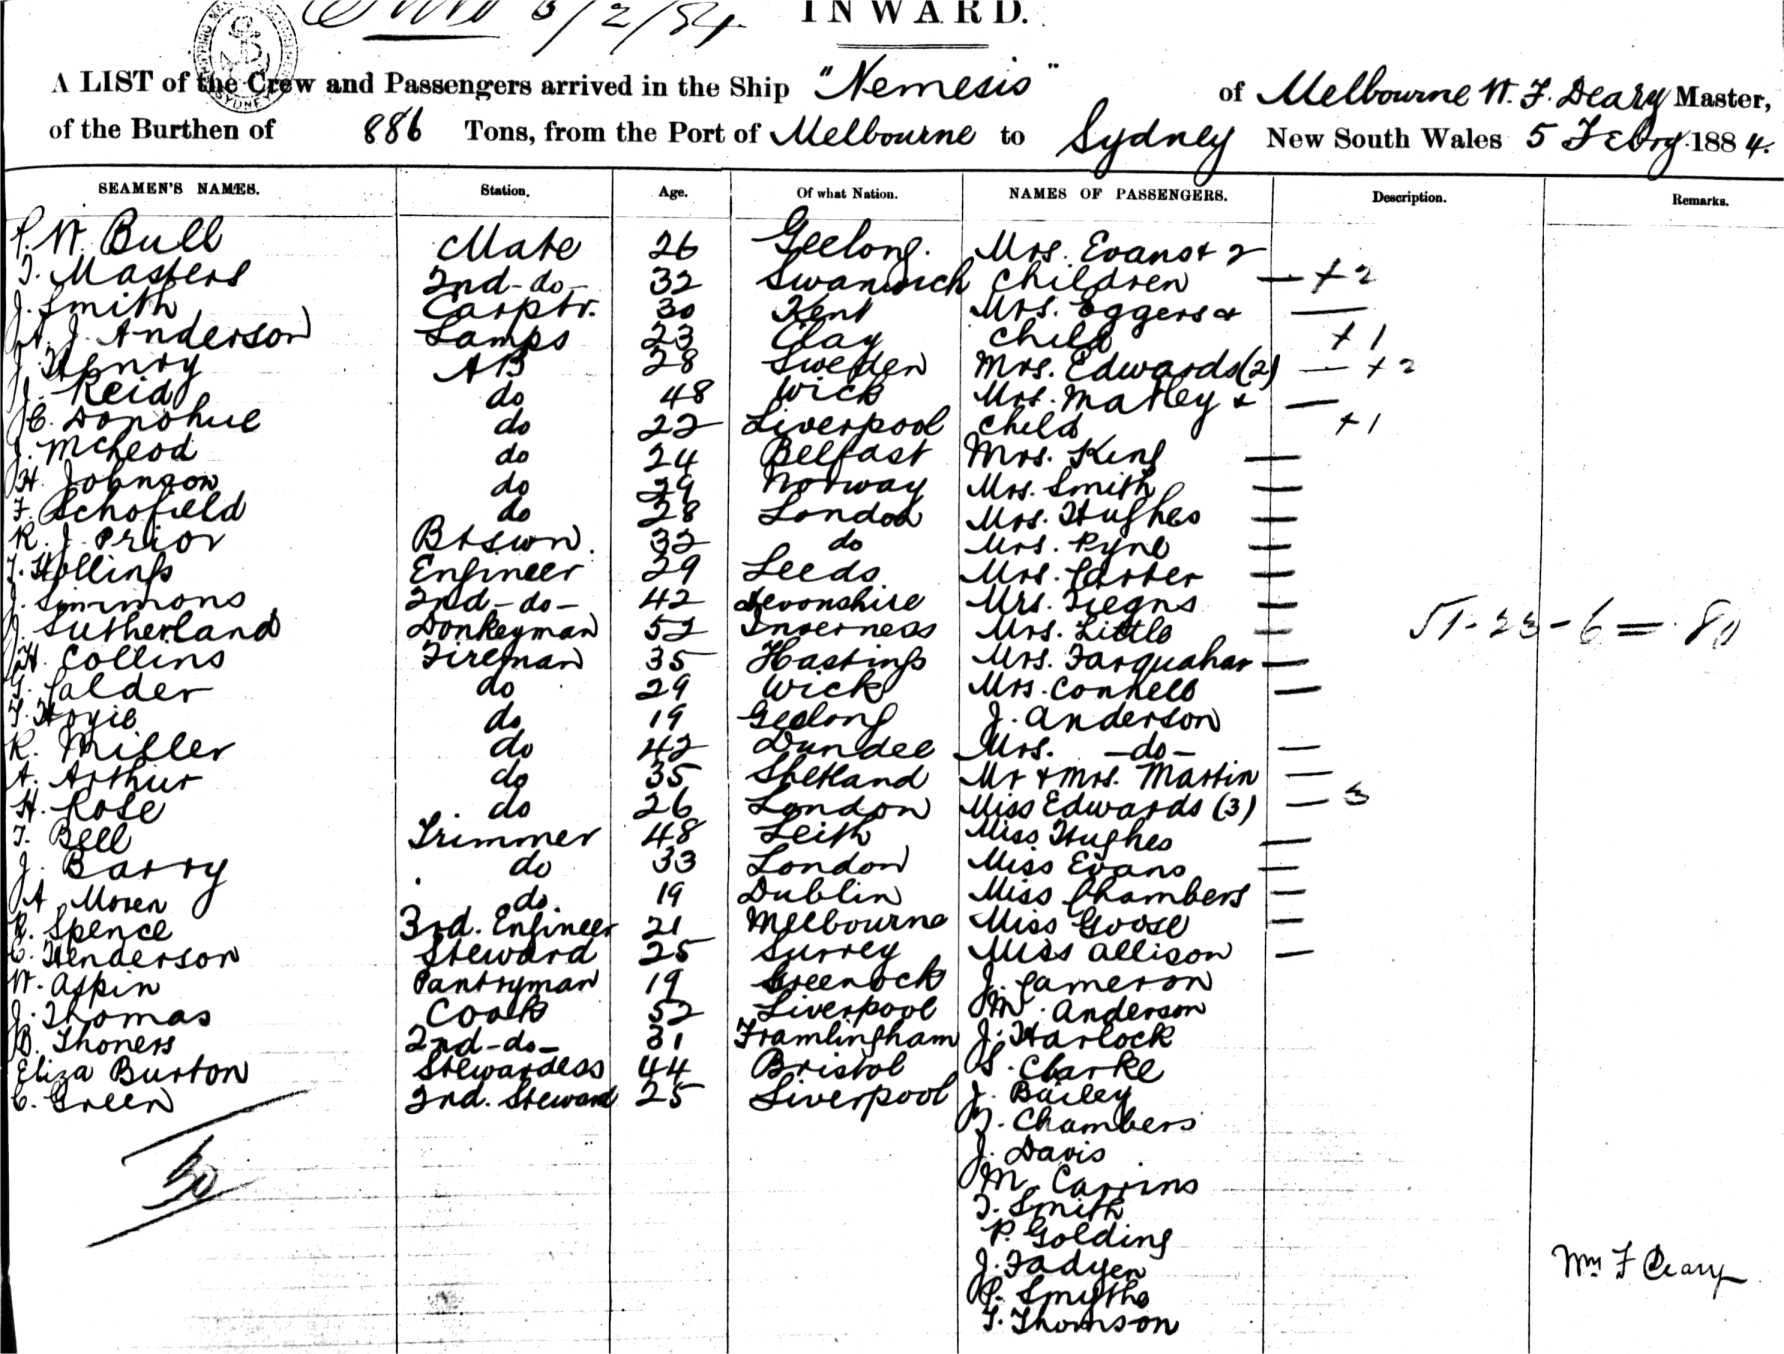 5/2/84.
INWARD.
A LIST of the Crew and Passengers arrived in the Ship "Nemesis" of Melbourne W. F. Deary Master,
of the Burthen of 886 Tons, from the Port of Melbourne to Sydney New South Wales 5 Febry. 1884.
SEAMEN'S NAMES. Station. Age. Of what Nation. NAMES OF PASSENGERS. Description. Remarks.
P. W. Bull Mate 26 Geelong. Mrs. Evans + 2
T. Masters 2nd-do- 32 Swanwich children — + 2
J. Smith Carptr. 30 Kent Mrs. Eggers + —
A. J. Anderson Lamps 23 Clay child + 1
J. Henry AB 28 Sweden Mrs. Edwards (2) — + 2
J. Reid do 48 Wick Mrs. Matley + —
C. Donohue do 22 Liverpool child + 1
J. McLeod do 24 Belfast Mrs. King —
H. Johnson do 29 Norway Mrs. Smith —
F. Schofield do 28 London Mrs. Hughes —
R. J. Prior Btswn. 32 do Mrs. Pyne —
J. Hollings Engineer 29 Leeds Mrs. Carter —
J. Simmons 2nd-do- 42 Devonshire Mrs. —
J. Sutherland Donkeyman 52 Inverness Mrs. Little — 51-23-6=80
H. Collins Fireman 35 Hastings Mrs. Farquahar —
G. Calder do 29 Wick Mrs. Connell —
T. Hoyie do 19 Geelong J. Anderson
R. Miller do 42 Dundee Mrs. -do- —
A. Arthur do 35 Shetland Mr + Mrs. Martin —
H. Rose do 26 London Miss Edwards (3) — 3
T. Bell Trimmer 48 Leith Miss Hughes —
J. Barry do 33 London Miss Evans —
A. Moren do. 19 Dublin Miss Chambers —
R. Spence 3rd. Engineer 21 Melbourne Miss Goose —
C. Henderson Steward 25 Surrey Miss Allison —
W. Aspin Pantryman 19 Greenock J. Cameron
J. Thomas Cook 52 Liverpool M. Anderson
B. Thoners 2nd-do- 31 Framlingham J. Harlock
Eliza Burton Stewardess 44 Bristol S. Clarke
C. Green 2nd. Steward 25 Liverpool J. Bailey
Chambers
J. Davis
30 M. Carrins
T. Smith
P. Golding
J. Fadyen Wm F Deary
P. Smythe
T. Thomson